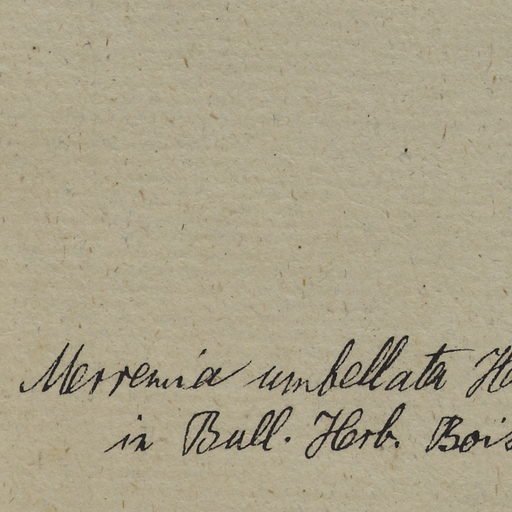 Merremia umbellata Ha
in Bull. Herb. Bois